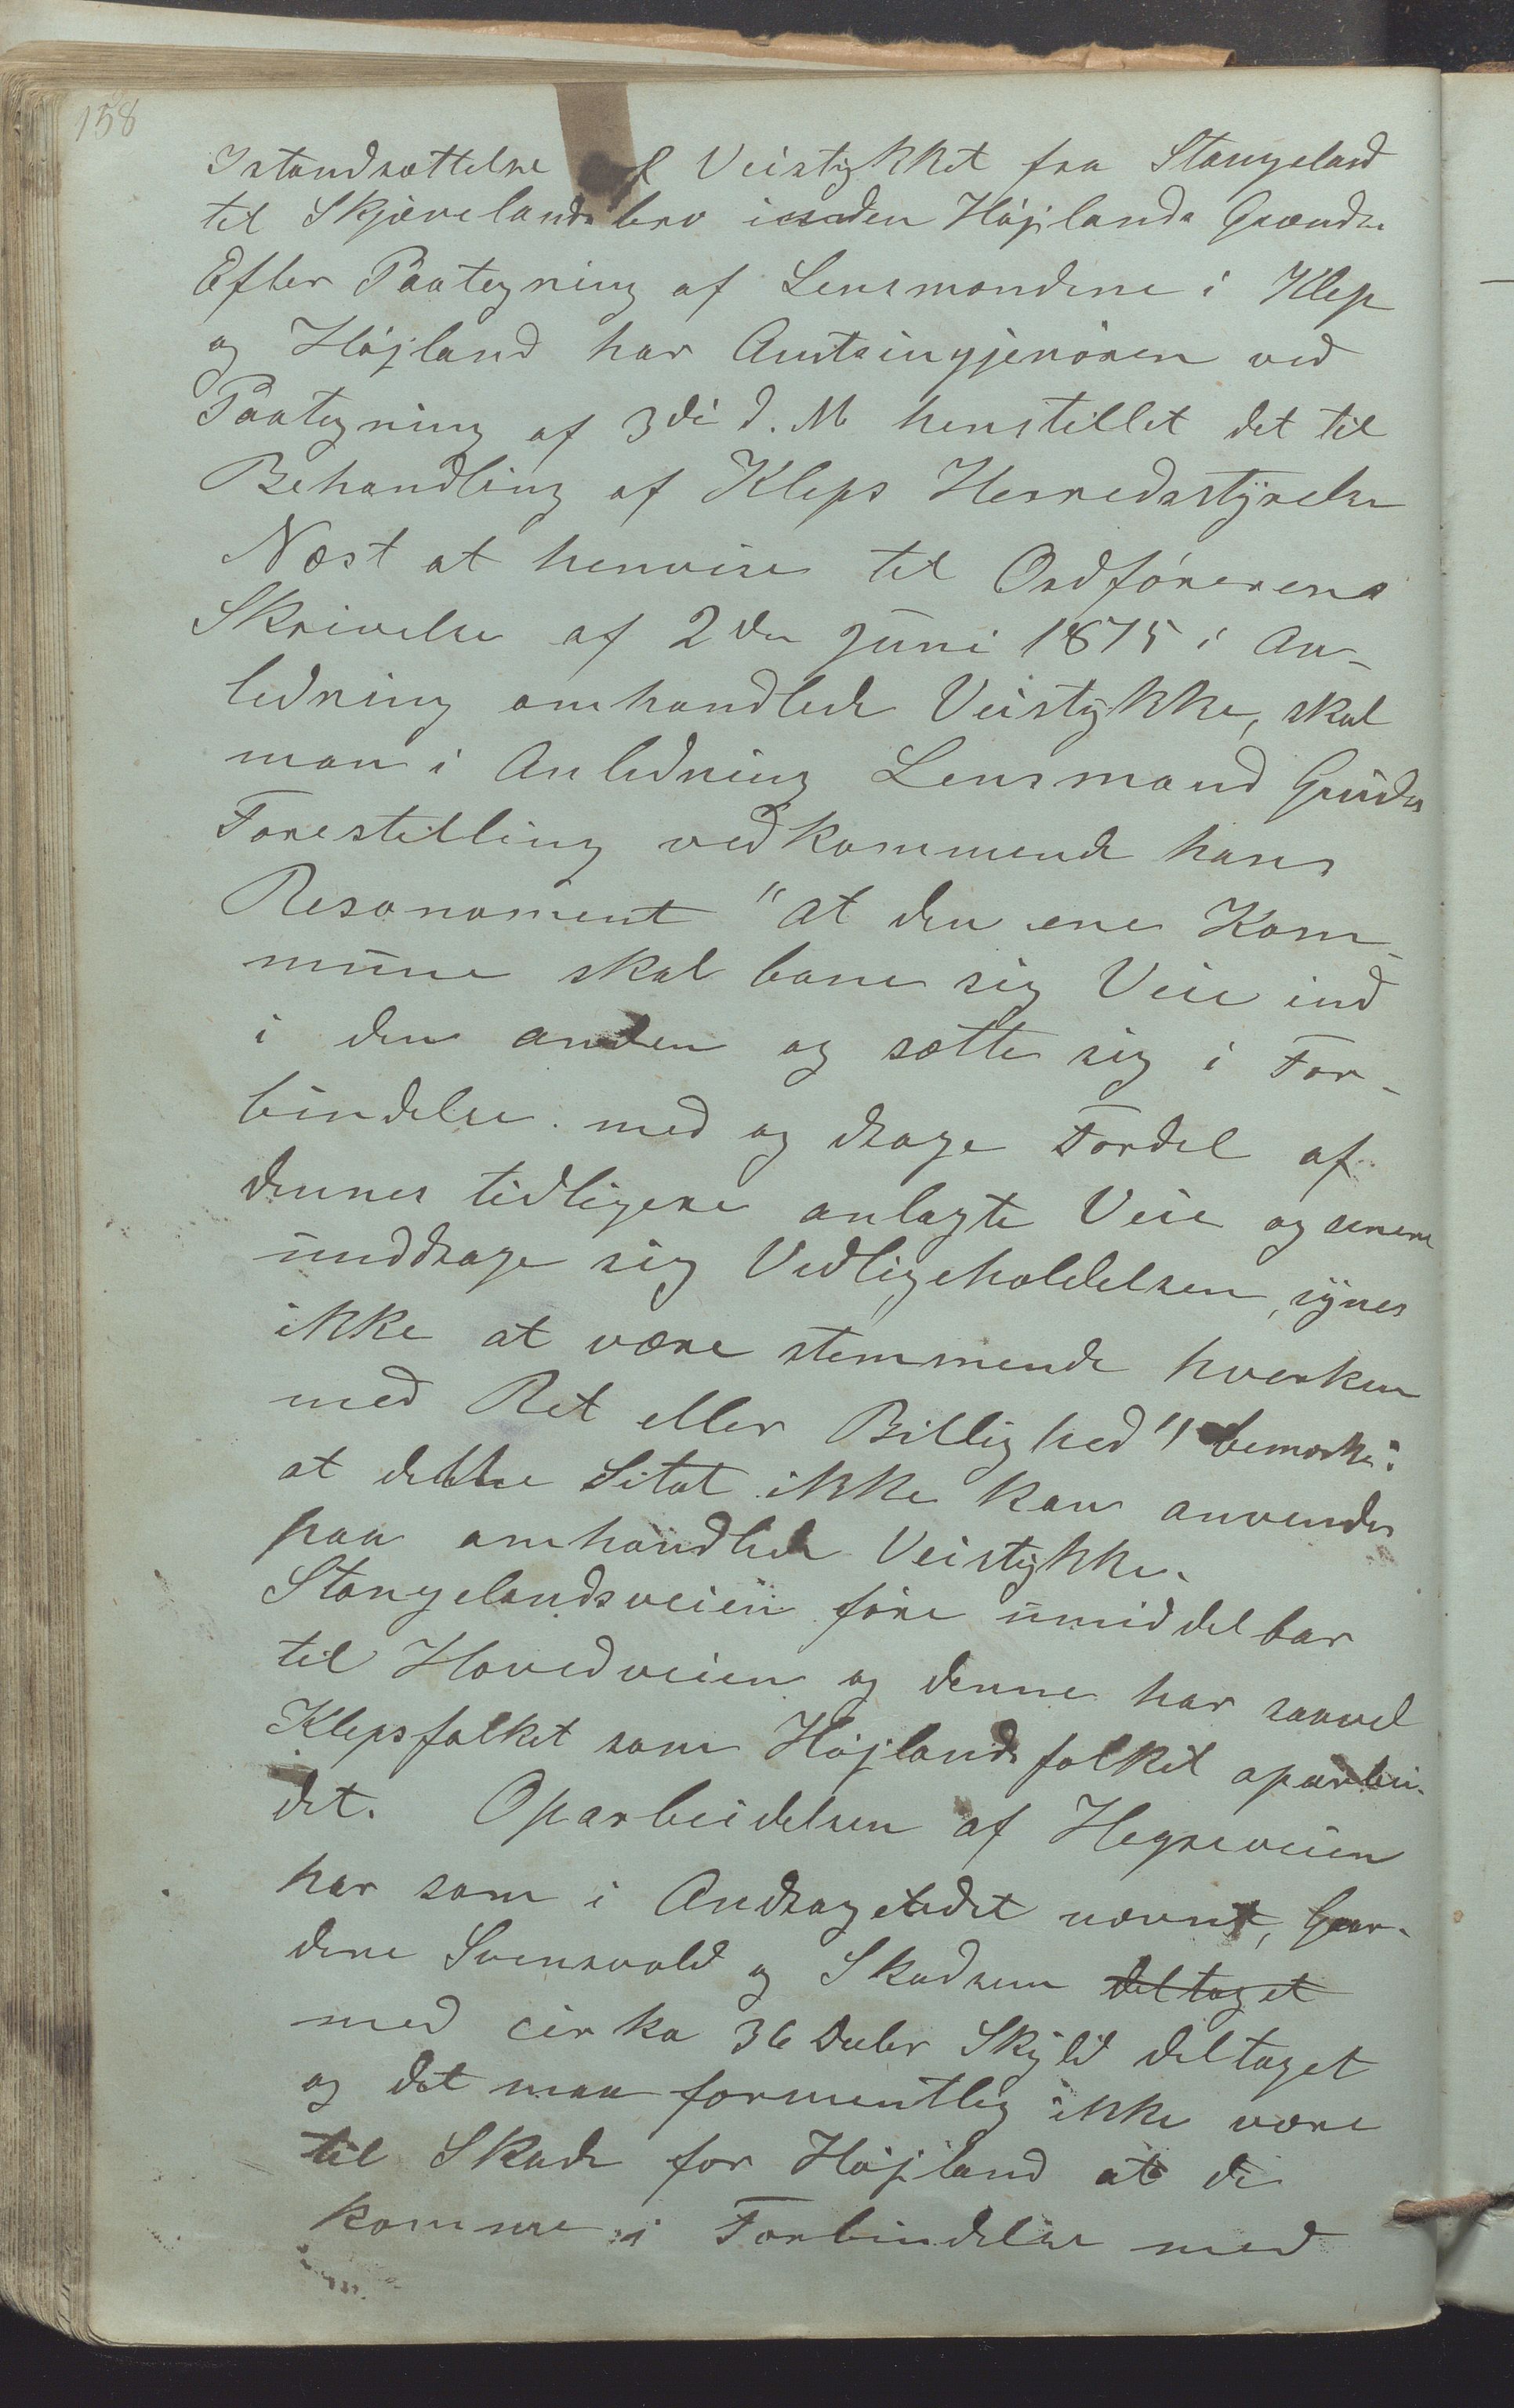 158
Istandsættelse af Veistykket fra Stangeland
til Skjævelandsbro inden Højlands Grændse
Efter Paategning af Lensmændene i Klep
og Højland har Amtsingjenøren ved
Paategning af 3die d. M henstillet det til
Behandling af Kleps Herredsstyrelse
Næst at henvise til Ordførerens
Skrivelse af 2den Juni 1875 i An-
ledning omhandlede Veistykke, skal
man i Anledning Lensmand Gruder
Forestilling vedkommende hans
Resonoment "at den ene Kom-
mune skal bane sig Veie ind
i den anden og sætte sig i For-
bindelse med og drage Fordel af
dennes tidligere anlagte Veie og senere
unddrage sig Vedligeholdelsen, synes
ikke at være stemmende hverken
med Ret eller Billighed" bemærke:
at dette Sitat ikke kan anvendes
paa omhandlede Veistykke.
Stangelandsveien føre umiddelbar
til Hovedveien og denne har saavel
Klepsfolket som Højlandsfolket oparbei-
det. Oparbeidelsen af Hegreveien
har som i Andragetedet nævnt, Gaar-
dene Svensvold og Skadsem deltaget
med cirka 36 Daler Skyld deltaget
og det maa formentlig ikke være
til Skade for Højland at de
komme i Forbindelse med